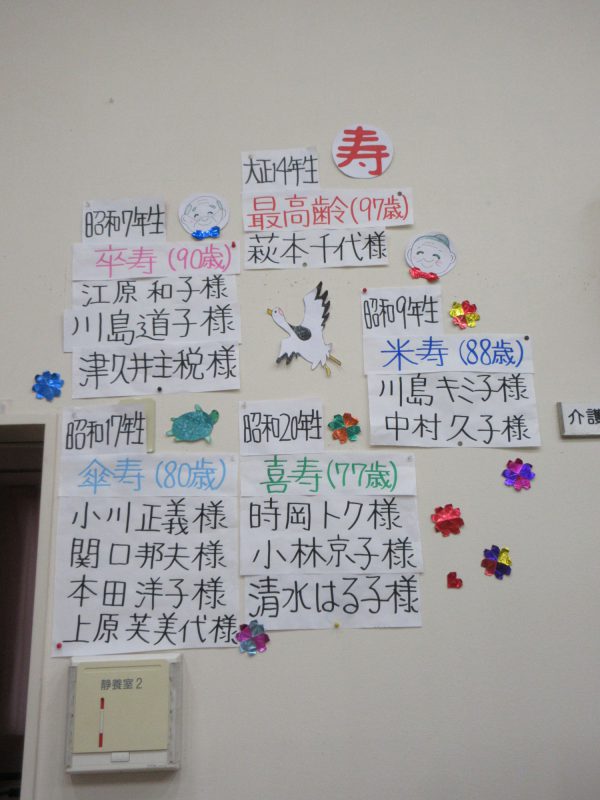 寿
大正14年生
最高齢(97歳)
萩本千代様
昭和7年生
卒寿(90歳)
江原和子様
川島道子様
津久井主税様
昭和9年生
米寿(88歳)
川島キミ子様
中村久子様
昭和17年生
傘寿(80歳)
小川正義様
関口邦夫様
本田洋子様
上原芙美代様
昭和20年生
喜寿(77歳)
時岡トク様
小林京子様
清水はる子様
介護
静養室2